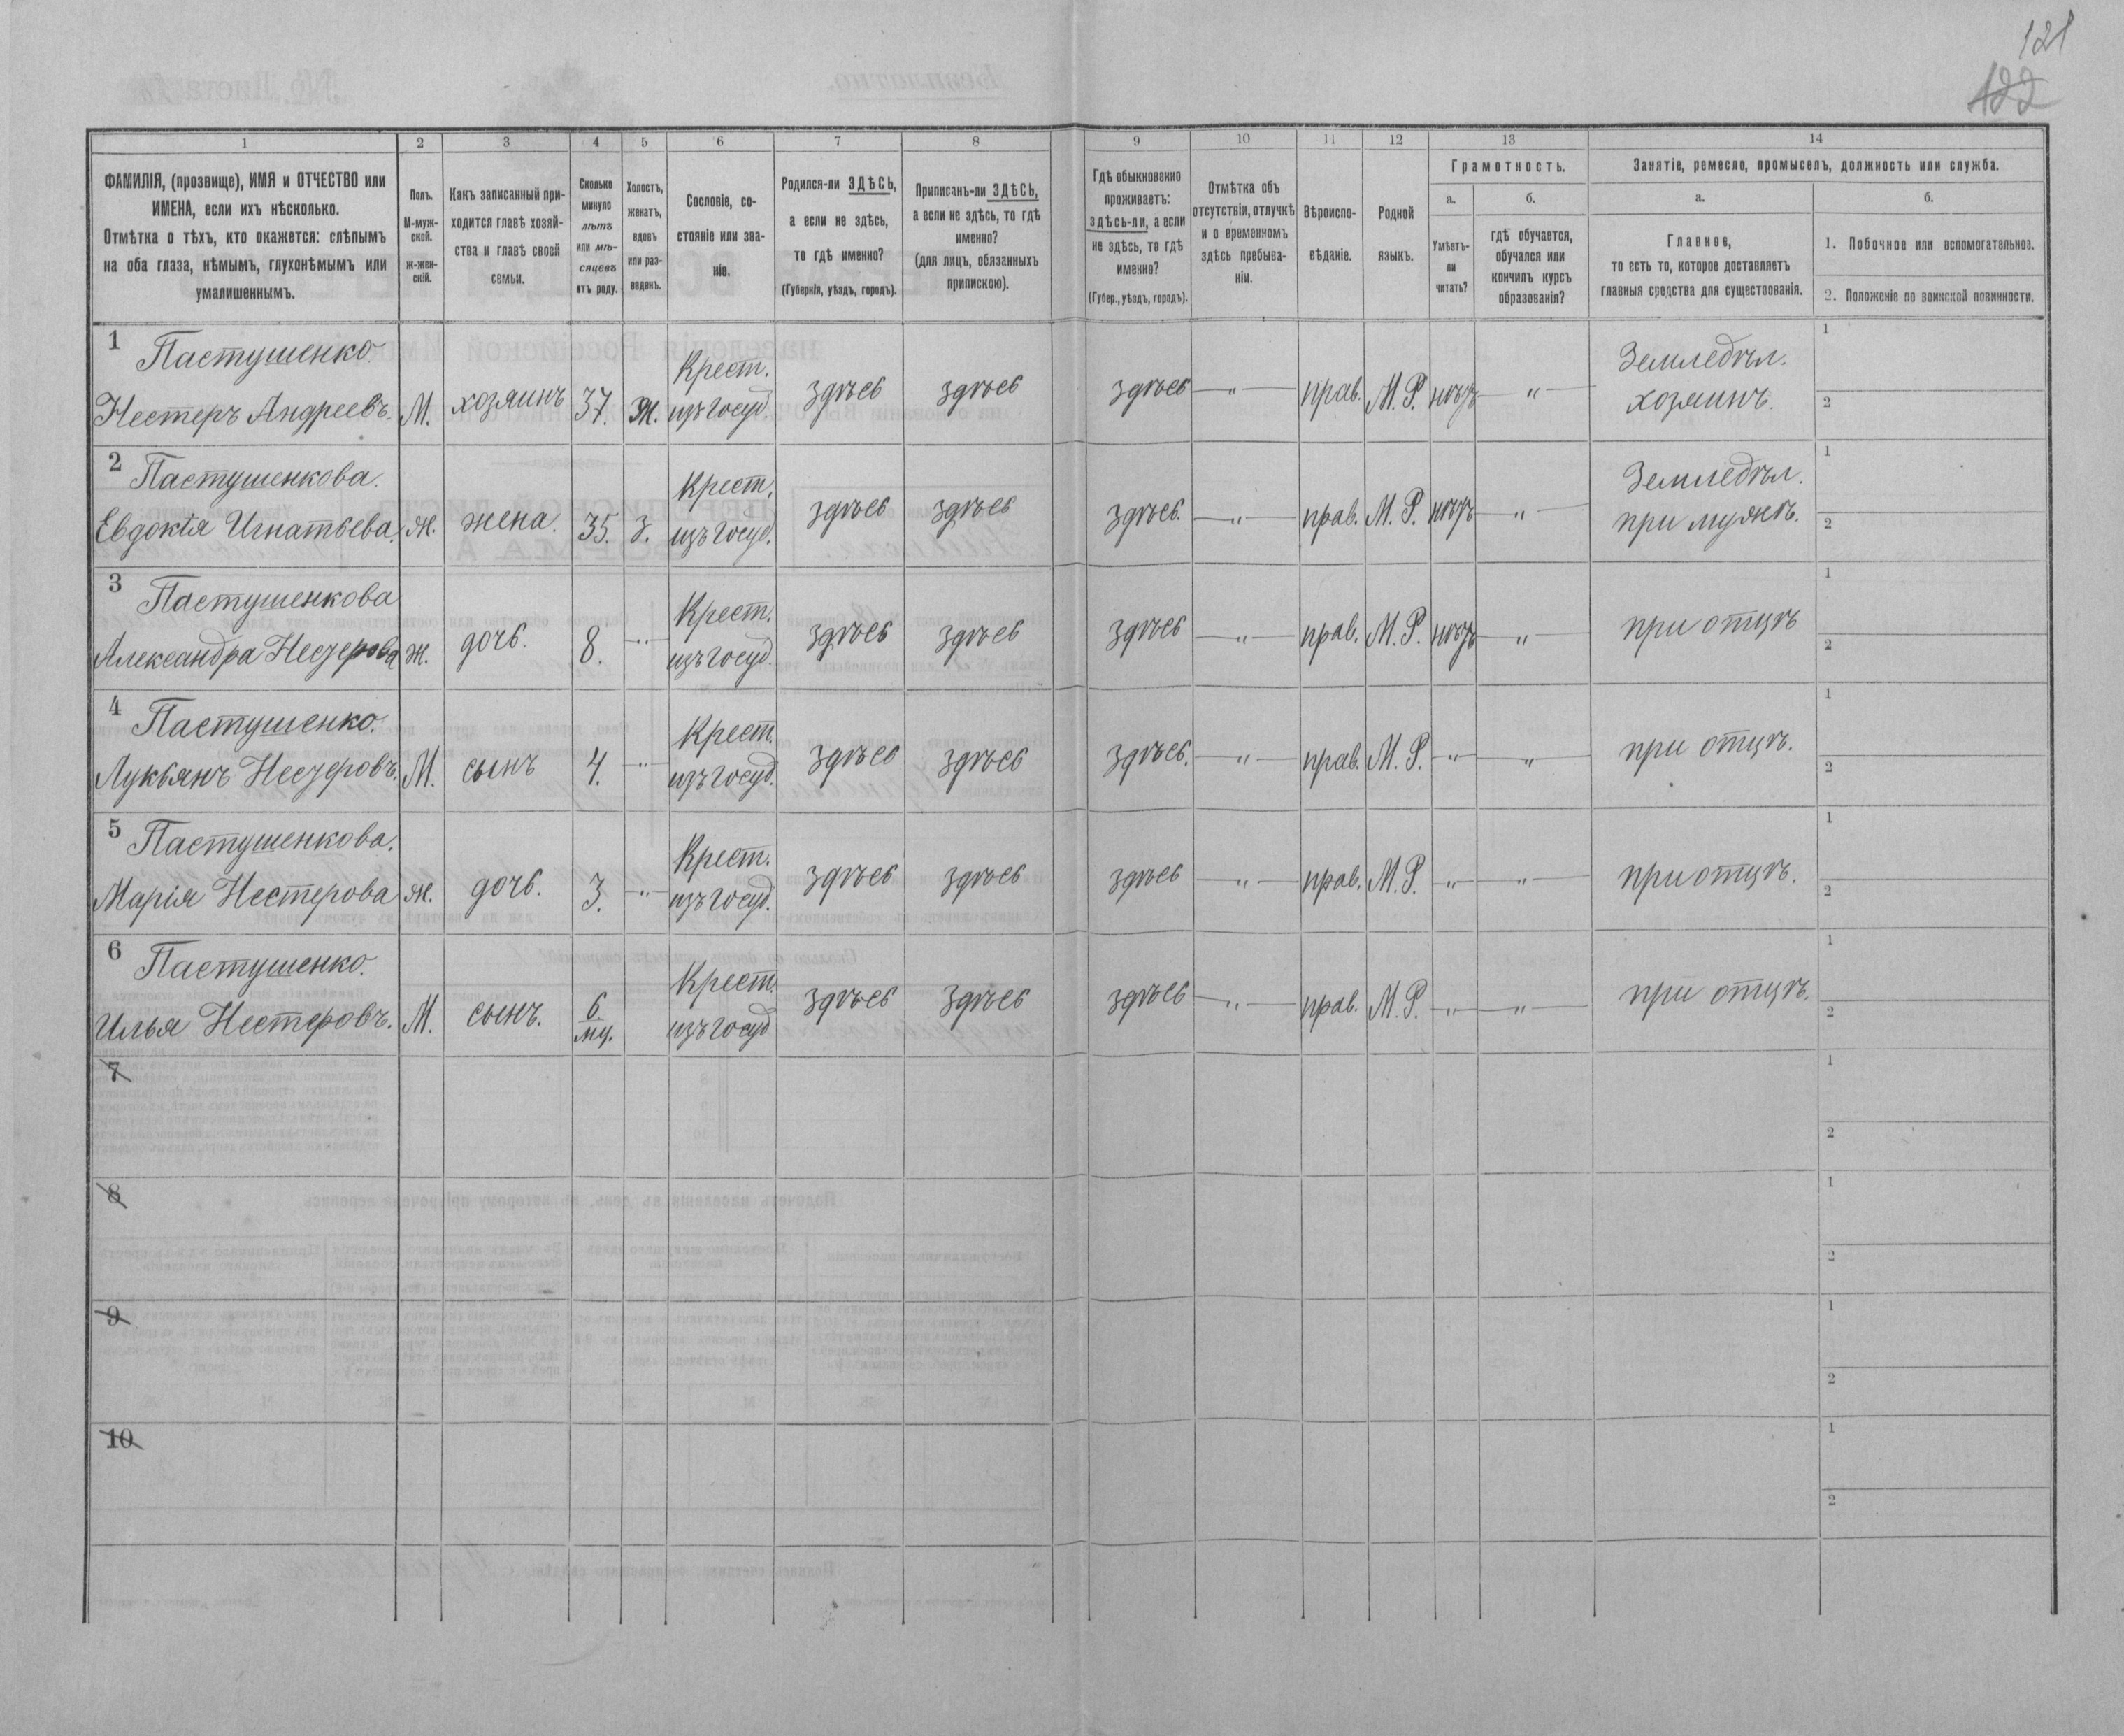 121
122
1 2 3 4 5 6 7 8 9 10 11 12 13 14
ФАМИЛІЯ, (прозвище), ИМЯ и ОТЧЕСТВО или
ИМЕНА, если ихъ нѣсколько.
Отмѣтка о тѣхъ, кто окажется: слѣпымъ
на оба глаза, нѣмымъ, глухонѣмымъ или
умалишеннымъ.
Полъ.
М-муж-
ской.
Ж-жен-
скій.
Какъ записанный при-
ходится главѣ хозяй-
ства и главѣ своей
семьи.
Сколько
минуло
лѣтъ
или мѣ-
сяцевъ
отъ роду.
Холостъ,
женатъ,
вдовъ
или раз-
веденъ.
Сословіе, со-
стояніе или зва-
ніе.
Родился-ли ЗДѢСЬ,
а если не здѣсь,
то гдѣ именно?
(Губернія, уѣздъ, городъ).
Приписанъ-ли ЗДѢСЬ,
а если не здѣсь, то гдѣ
именно?
(для лицъ, обязанныхъ
припискою).
Гдѣ обыкновенно
проживаетъ:
здѣсь-ли, а если
не здѣсь, то гдѣ
именно?
(Губер., уѣздъ, городъ).
Отмѣтка объ
отсутствіи, отлучкѣ
и о временномъ
здѣсь пребыва-
ніи.
Вѣроиспо-
вѣданіе.
Родной
языкъ.
Грамотность.
а.
Умѣетъ-
ли
читать?
б.
гдѣ обучается,
обучался или
кончилъ курсъ
образованія?
Занятіе, ремесло, промыселъ, должность или служба.
а.
Главное,
то есть то, которое доставляетъ
главныя средства для существованія.
б.
1. Побочное или вспомогательное.
2. Положеніе по воинской повинности.
1 Пастушенко Крест. Земледѣл. 1
Нестеръ Андреевъ. М. хозяинъ 37. Ж. изъ госуд. здѣсь здѣсь здѣсь — " — прав. М. Р. нѣтъ — " — хозяинъ. 2
2 Пастушенкова. Крест. Земледѣл. 1
Евдокія Игнатьева. Ж. жена. 35. З. изъ госуд. здѣсь здѣсь здѣсь. — " — прав. М. Р. нѣтъ — " — при мужѣ. 2
3 Пастушенкова Крест. 1
Александра Нестерова Ж. дочь. 8. — " — изъ госуд. здѣсь здѣсь здѣсь — " — прав. М. Р. нѣтъ — " — при отцѣ 2
4 Пастушенко. Крест. 1
Лукьянъ Нестеровъ. М. сынъ 4. — " — изъ госуд. здѣсь здѣсь здѣсь. — " — прав. М. Р. — " — " — при отцѣ. 2
5 Пастушенкова. Крест. 1
Марія Нестерова Ж. дочь. 3. — " — изъ госуд. здѣсь здѣсь здѣсь — " — прав. М. Р. — " — " — при отцѣ. 2
6 Пастушенко. Крест. 1
Илья Нестеровъ. М. сынъ. 6 мц. изъ госуд здѣсь здѣсь здѣсь — " — прав. М. Р. — " — " — при отцѣ. 2
7 1
2
8 1
2
9 1
2
10 1
2